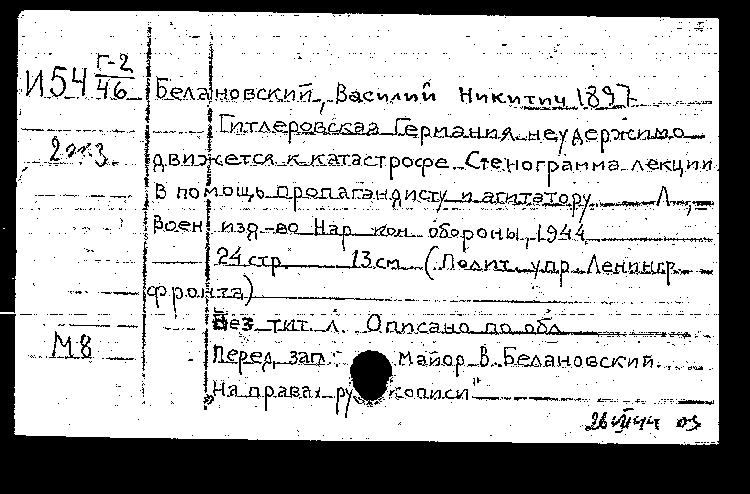 И54 Г-2/46
Белановский, Василий Никитич 1897
Гитлеровская Германия неудержимо
2 экз.
движется к катастрофе. Стенограмма лекции
В помощь пропагандисту и агитатору. Л.,
Воен. изд-во Нар. ком. обороны, 1944
24 стр. 13 см. (Полит. упр. Ленингр.
фронта)
Без тит. л. Описано по обл.
М8
Перед. зап.: майор В. Белановский.
"На правах рукописи"